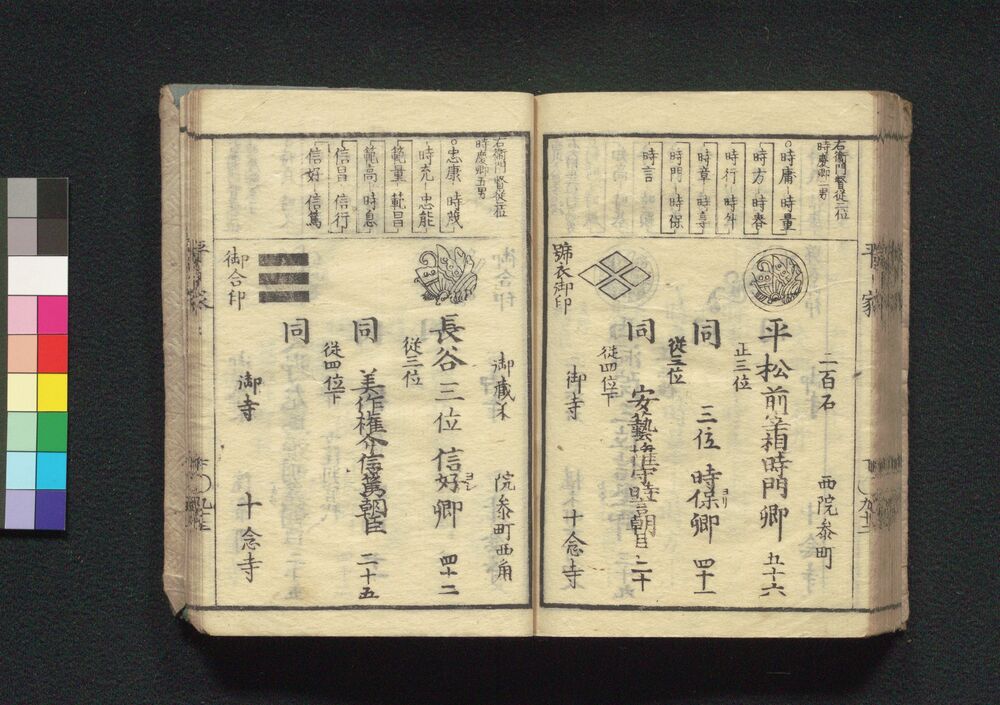 右衛門督従二位
時慶卿二男
○時庸―時量
時方―時春
時行―時升
時章―時亨
時門―時保
時言
二百石 西院参町
平松前宰相時門卿 五十六
正三位
同 三位時保卿 四十一
従三位
同 安藝権介時言朝臣 二十
従四位下
御寺 十念寺
平家
右衛門督従二位
時慶卿五男
○忠康―時茂
時充―忠能
範量―範昌
範高―時息
信昌―信行
信好―信篤
御蔵米 院参町西角
長谷三位信好卿 四十二
従三位
同 美作権介信篤朝臣 二十五
従四位下
同
御合印
御寺 十念寺